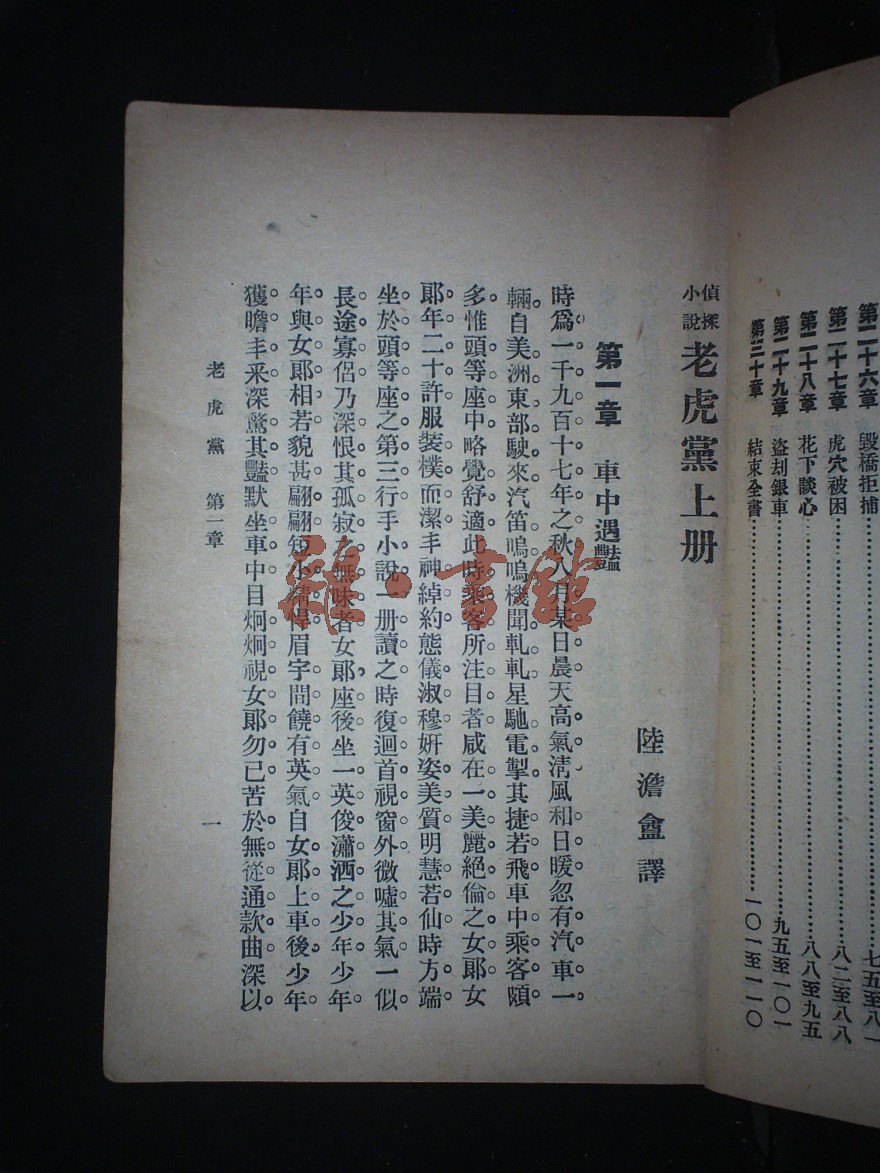 第二十六章 毀橋拒捕……七五至八一
第二十七章 虎穴被困……八二至八八
第二十八章 花下談心……八八至九五
第二十九章 盜刦銀車……九五至一〇一
第三十章 結束全書……一〇一至一一〇
偵探小說 老虎黨上册
陸澹盦譯
第一章 車中遇豔
時爲一千九百十七年之秋八月某日晨天高氣淸風和日暖忽有汽車一
輛自美洲東部駛來汽笛嗚嗚機聞軋軋星馳電掣其捷若飛車中乘客頗
多惟頭等座中略覺舒適此時乘客所注目者咸在一美麗絕倫之女郞女
郞年二十許服裝樸而潔丰神綽約態儀淑穆姸姿美質明慧若仙時方端
坐於頭等座之第三行手小說一册讀之時復迴首視窗外微噓其氣一似
長途寡侶乃深恨其孤寂之無味者女郞座後坐一英俊瀟洒之少年少年
年與女郞相若貌甚翩翩短小精悍眉宇間饒有英氣自女郞上車後少年
獲瞻丰采深驚其豔默坐車中目炯炯視女郞勿已苦於無從通款曲深以
老虎黨 第一章
一
雜·書館